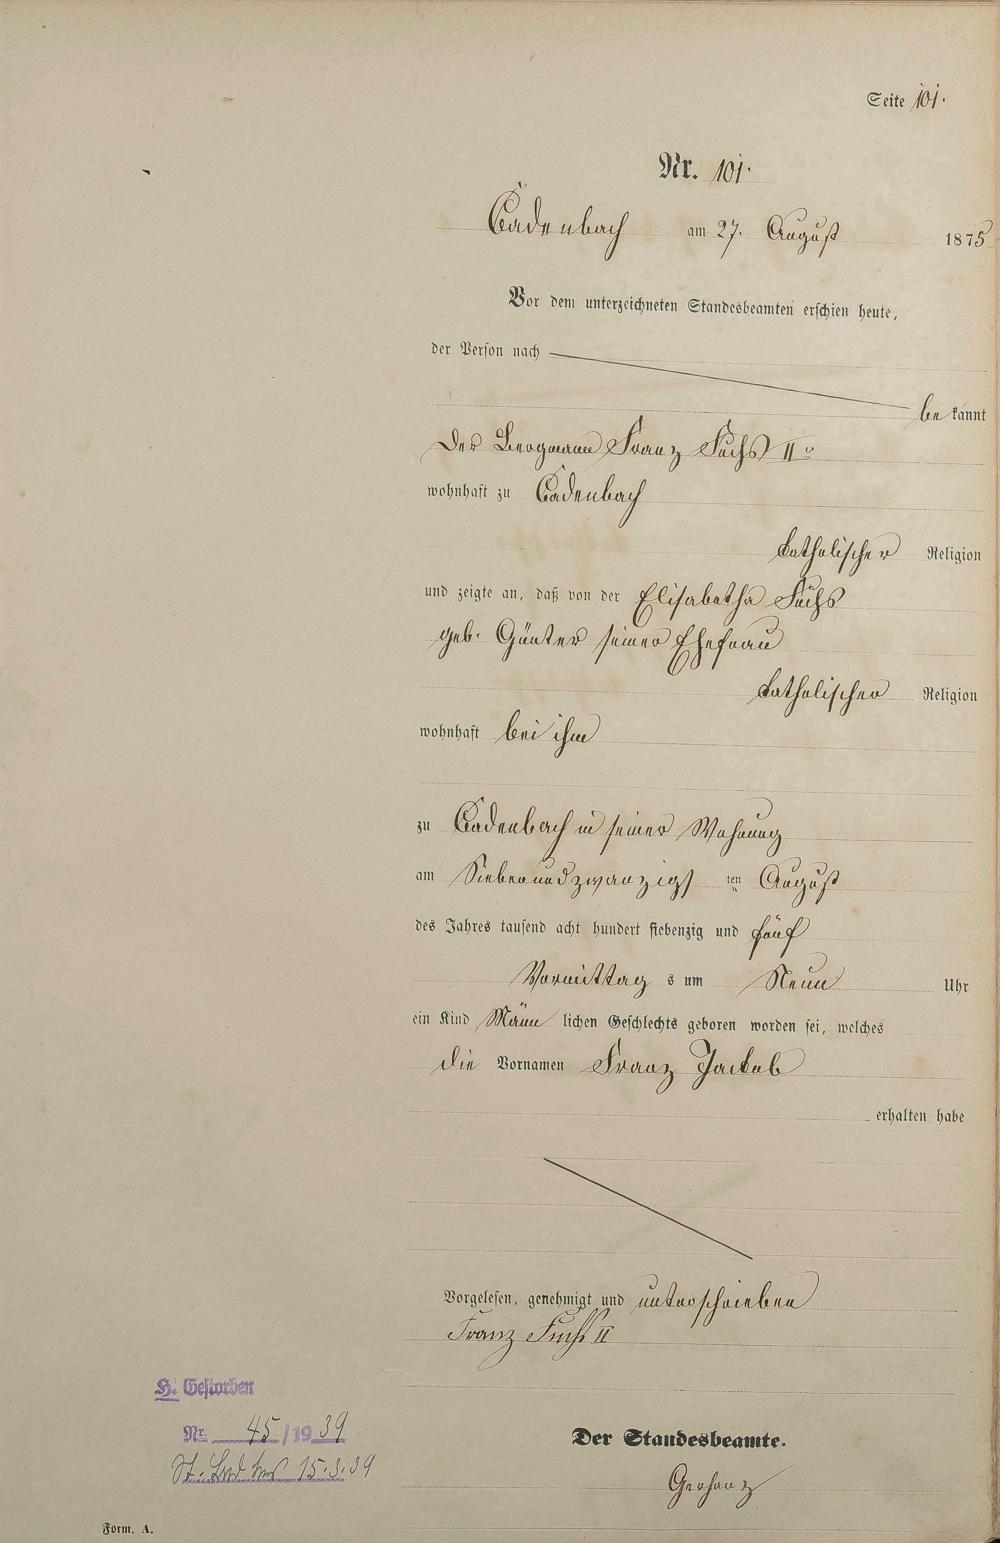 Seite 101.
Nr. 101.
Cadenbach am 27. August 1875
Vor dem unterzeichneten Standesbeamten erschien heute,
der Person nach
bekannt
der Bergmann Franz Fuchs II
wohnhaft zu Cadenbach
katholischer Religion
und zeigte an, daß von der Elisabetha Fuchs
geb. Günter seiner Ehefrau
katholischer Religion
wohnhaft bei ihm
zu Cadenbach in seiner Wohnung
am Siebenundzwanzigsten August
des Jahres tausend acht hundert siebenzig und fünf
Vormittags um Neun Uhr
ein Kind Männlichen Geschlechts geboren worden sei, welches
die Vornamen Franz Jackob
erhalten habe
Vorgelesen, genehmigt und unterschrieben
Franz Fuchs II
H. Gestorben
Nr. 45/1939
15.3.39
Der Standesbeamte.
Gerharz
Form. A.